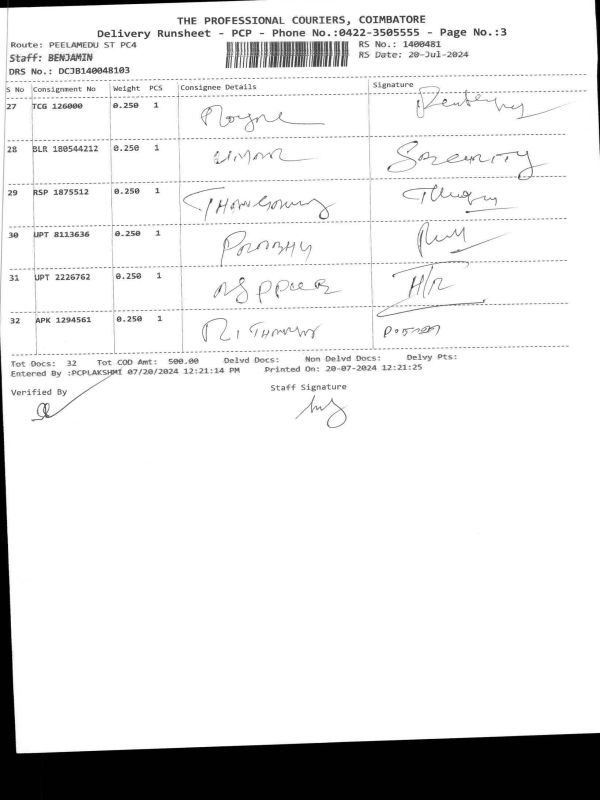 THE PROFESSIONAL COURIERS, COIMBATORE
Delivery Runsheet - PCP - Phone No.:0422-3505555 - Page No.:3
Route: PEELAMEDU ST PC4 RS No.: 1400481
Staff: BENJAMIN RS Date: 20-Jul-2024
DRS No.: DCJB140048103
S No Consignment No Weight PCS Consignee Details Signature
27 TCG 126000 0.250 1
28 BLR 180544212 0.250 1 Security
29 RSP 1875512 0.250 1
30 UPT 8113636 0.250 1
31 UPT 2226762 0.250 1 H/R
32 APK 1294561 0.250 1
Tot Docs: 32 Tot COD Amt: 500.00 Delvd Docs: Non Delvd Docs: Delvy Pts:
Entered By :PCPLAKSHMI 07/20/2024 12:21:14 PM Printed On: 20-07-2024 12:21:25
Verified By Staff Signature